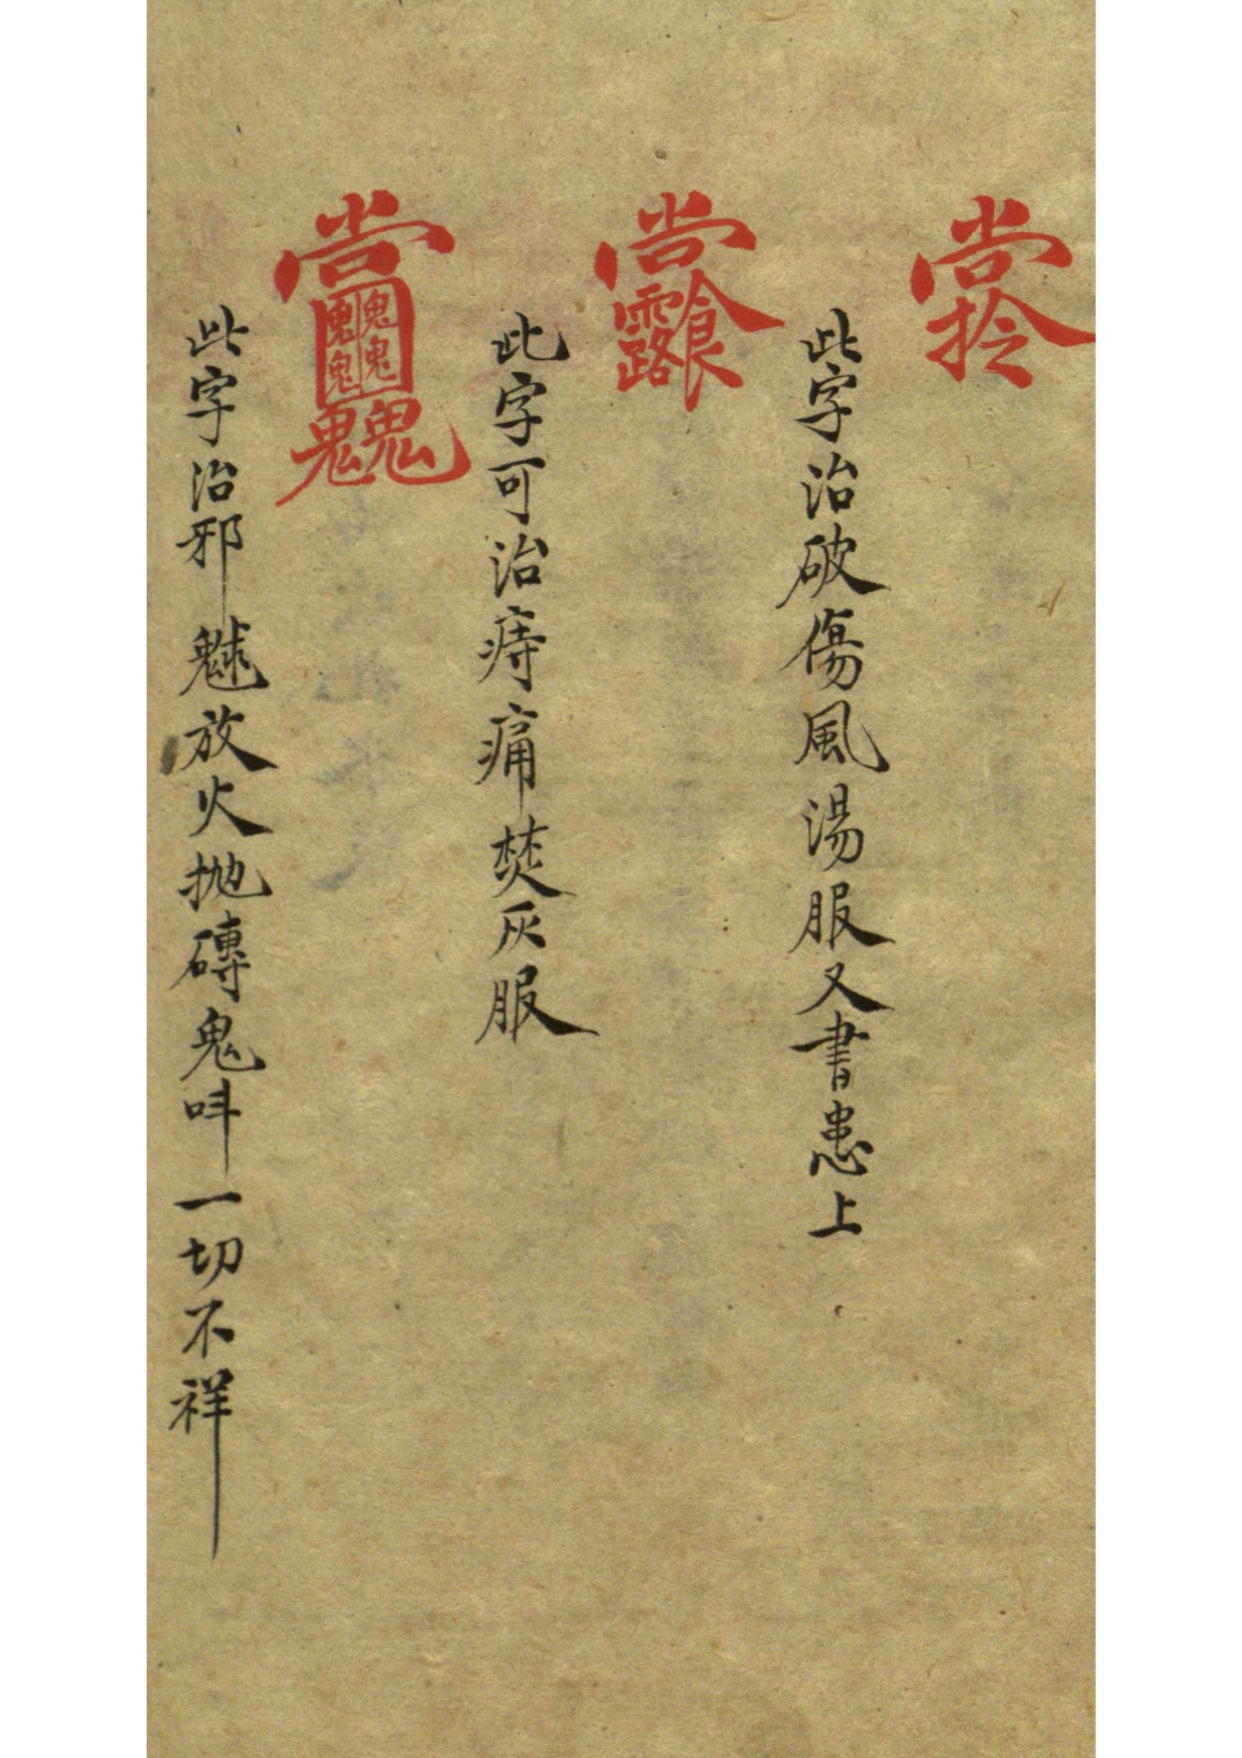 此字治破傷風湯服又書患上
此字可治痔痛焚灰服
此字治邪魅放火拋磚鬼呌一切不祥